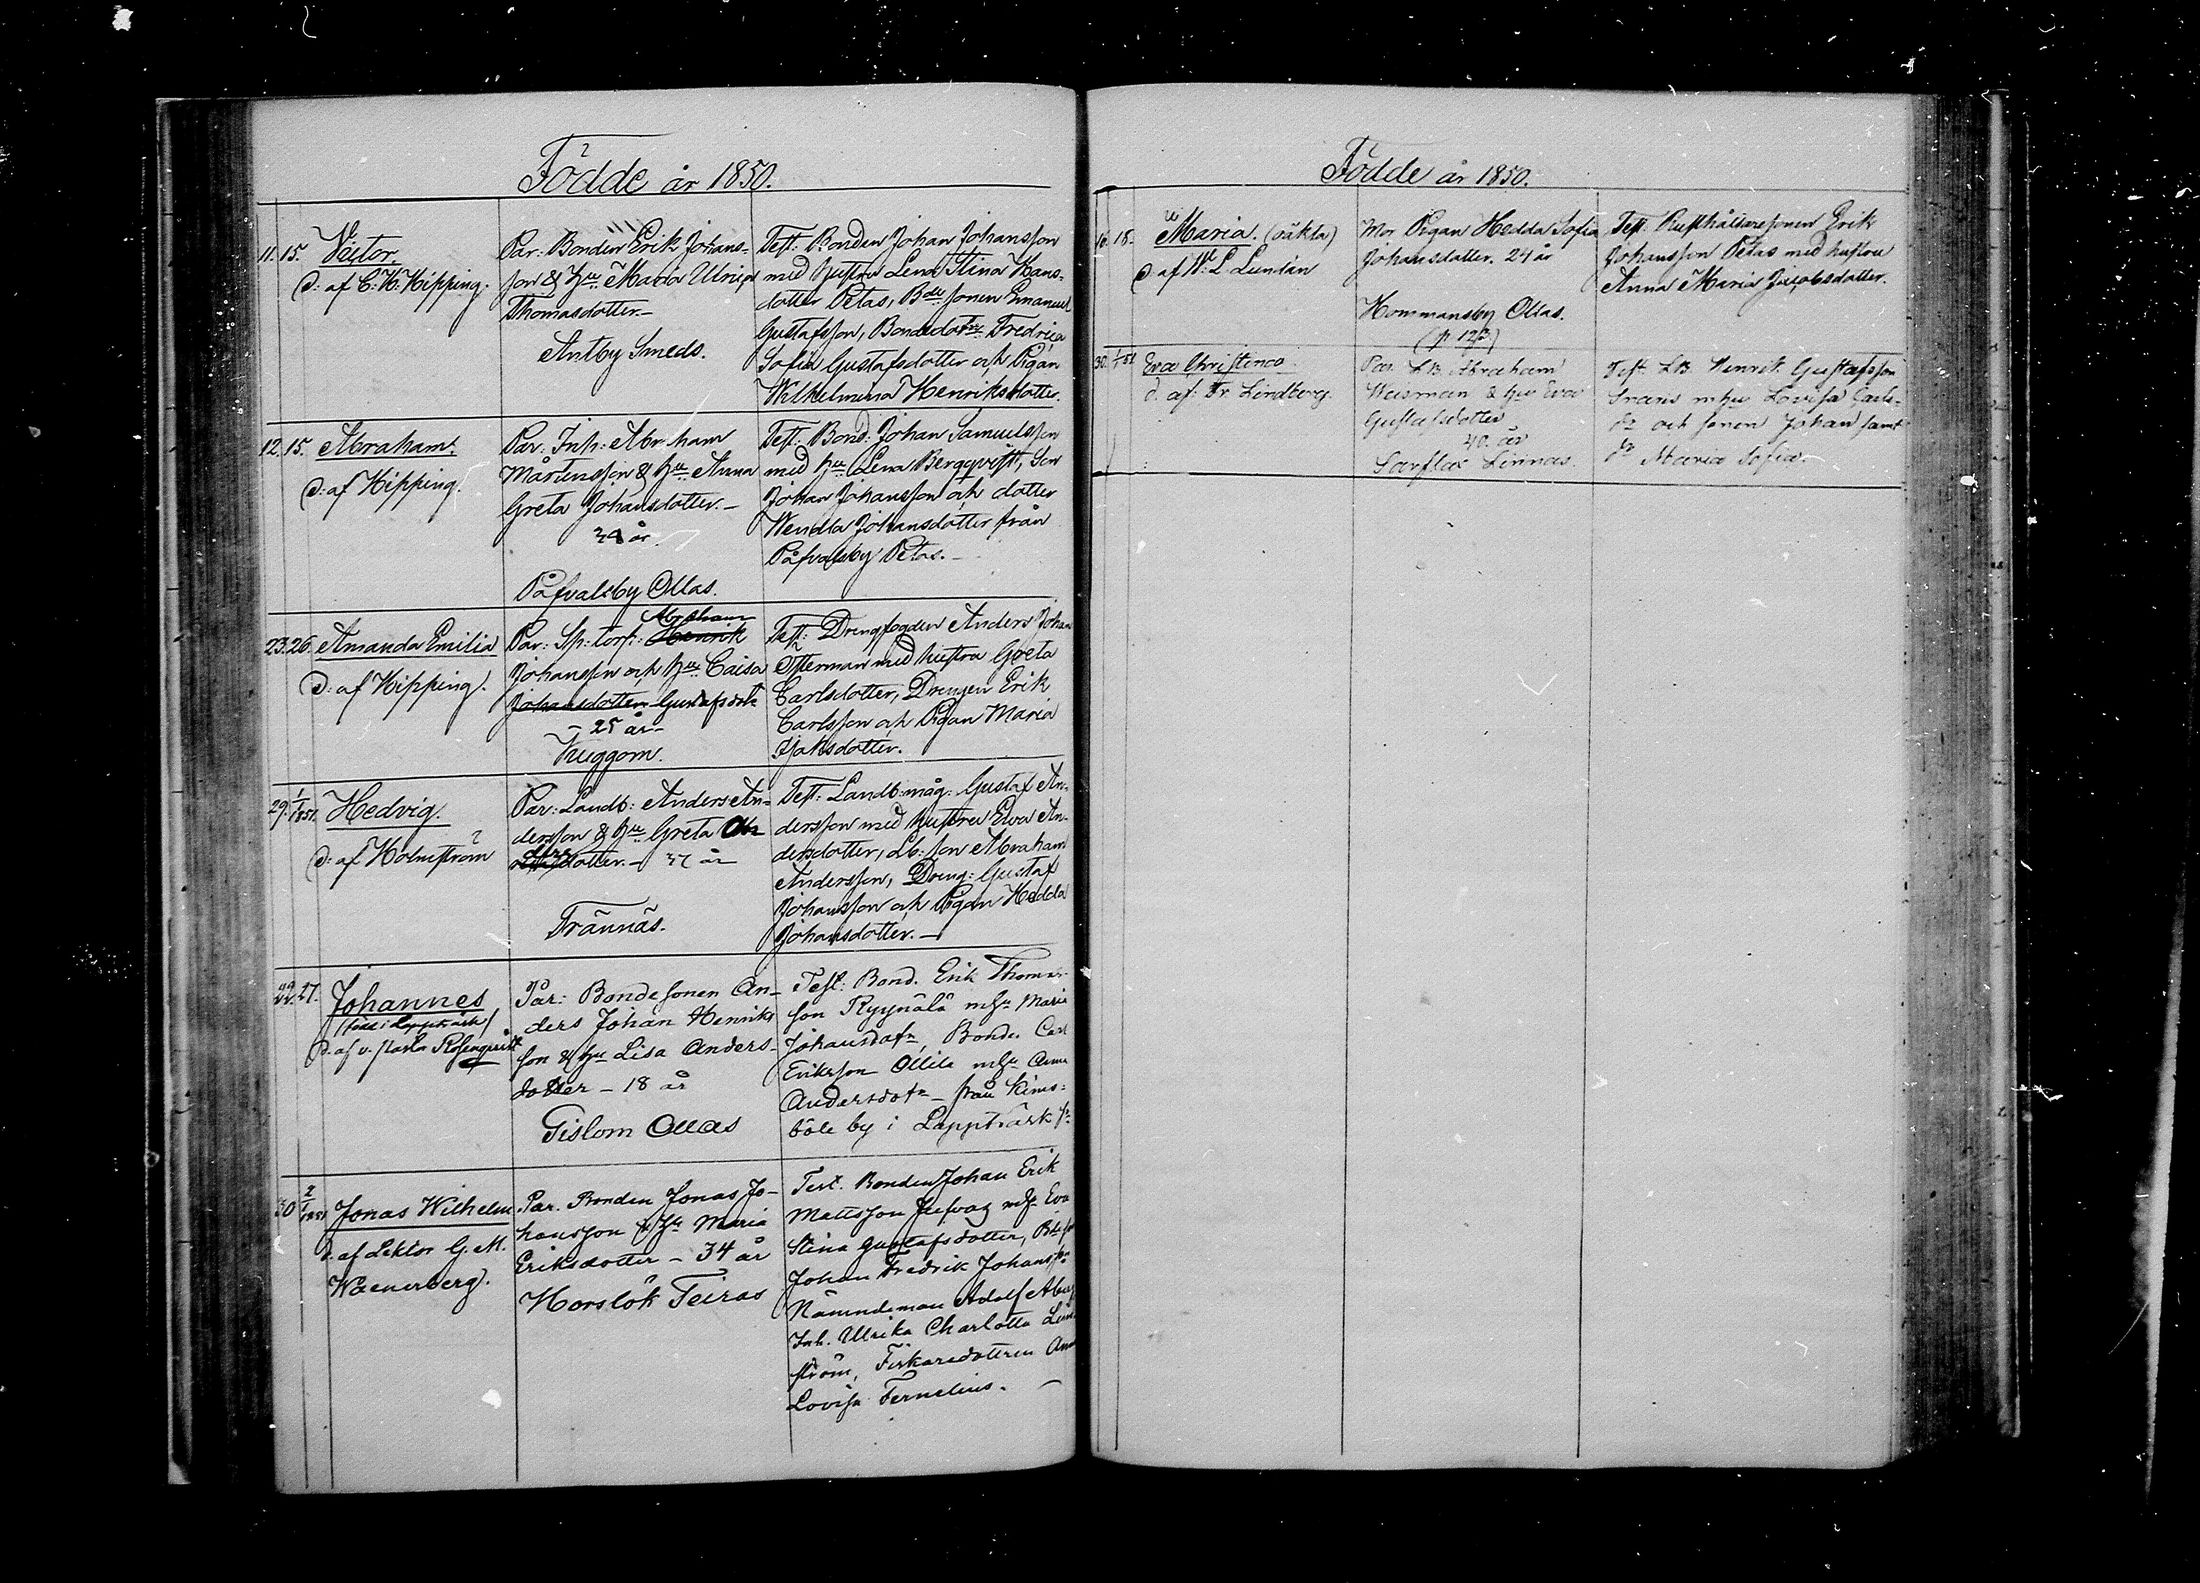 Födde år 1850.
11. 15. Victor.
d: af C: H. Hipping.
Par: Bonden Erik Johans-
son & hu Maria Ulrica
Thomasdotter.-
Antby Smeds.
Test: Bonden Johan Johansson
med hustru Lena Stina Hans-
dotter Petas, Bde sonen Emanuel
Gustafsson, Bondedotr Fredrica
Sofia Gustafsdotter och Pigan
Wilhelmina Henriksdotter.
12. 15. Abraham.
d: af Hipping.
Par: Inh: Abraham
Mårtensson & hu Anna
Greta Johansdotter.-
år.
Påfvalsby Ollas.
Test: Bond: Johan Samuelsson
med hu Lena Bergqvist, Son
Johan Johansson och dotter
Wendla Johansdotter från
Påfvalsby Petas.-
23. 26. Amanda Emilia
d: af Hipping.
Abraham
Par: Sp: torp: Henrik
Johansson och hu Caisa
Johansdotter Gustafsdotr
- 25 år -
Kuggom.
Test: Drengfogden Anders Johan
Österman med hustru Greta
Carlsdotter, Drengen Erik
Carlsson och Pigan Maria
Isaksdotter.
29. 1/1851. Hedvig.
d: af Holmström
Par: Landb: Anders An-
dersson & hu Greta
dotter.- 37 år
Trännäs.
Test: Landb: måg: Gustaf An-
dersson med hustru Eva An-
dersdotter, Lb: son Abraham
Andersson, Dreng: Gustaf
Johansson och Pigan Hedda
Johansdotter.-
27. Johannes
/född i Lappträsk/
d. af v. pastor Rosenqvist
Par: Bondesonen An-
ders Johan Henriks
son & hu Lisa Anders-
dotter - 18 år
Tislom Ollas
Test: Bond. Erik Thomas-
son Ryynälä mhu Maria
Johansdotr, Bonden Carl
Eriksson Ollila mhu Anna
Andersdotr - från Kims-
böle by i Lappträsk sn
30 2/1 1851 Jonas Wilhelm
d. af Lektor G. M.
Waenerberg.
Par. Bonden Jonas Jo-
hansson & hu Maria
Eriksdotter - 34 år
Horslök Teiras
Test. Bonden Johan Erik
Mattsson mhu Eva
Stina Gustafsdotter, Bde son
Johan Fredrik Johansson
Nämndeman Adolf
Inh. Ullrika Charlotta
ström, Fiskaredottren
Lovisa Fernelius. -
Födde år 1850.
16. 18. Maria. (oäkta)
d: af W. L. Lunlän
Mor Pigan Hedda Sofia
Johansdotter. 24 år
Hommansby Ollas.
(p 123)
Test. Rusthållaresonen Erik
Johansson Petas med hustru
Anna Maria Jacobsdotter.
30. 1/1 51 Eva Christina.
d. af: Fr. Lindberg.
Par. LB. Abraham
Weisman & hu Eva
Gustafsdotter
40. år
Sarflax Linnas.
Test. LB. Henrik Gustafsson
Grans mhu Lovisa Carls-
dr och sonen Johan samt
dr Maria Sofia.